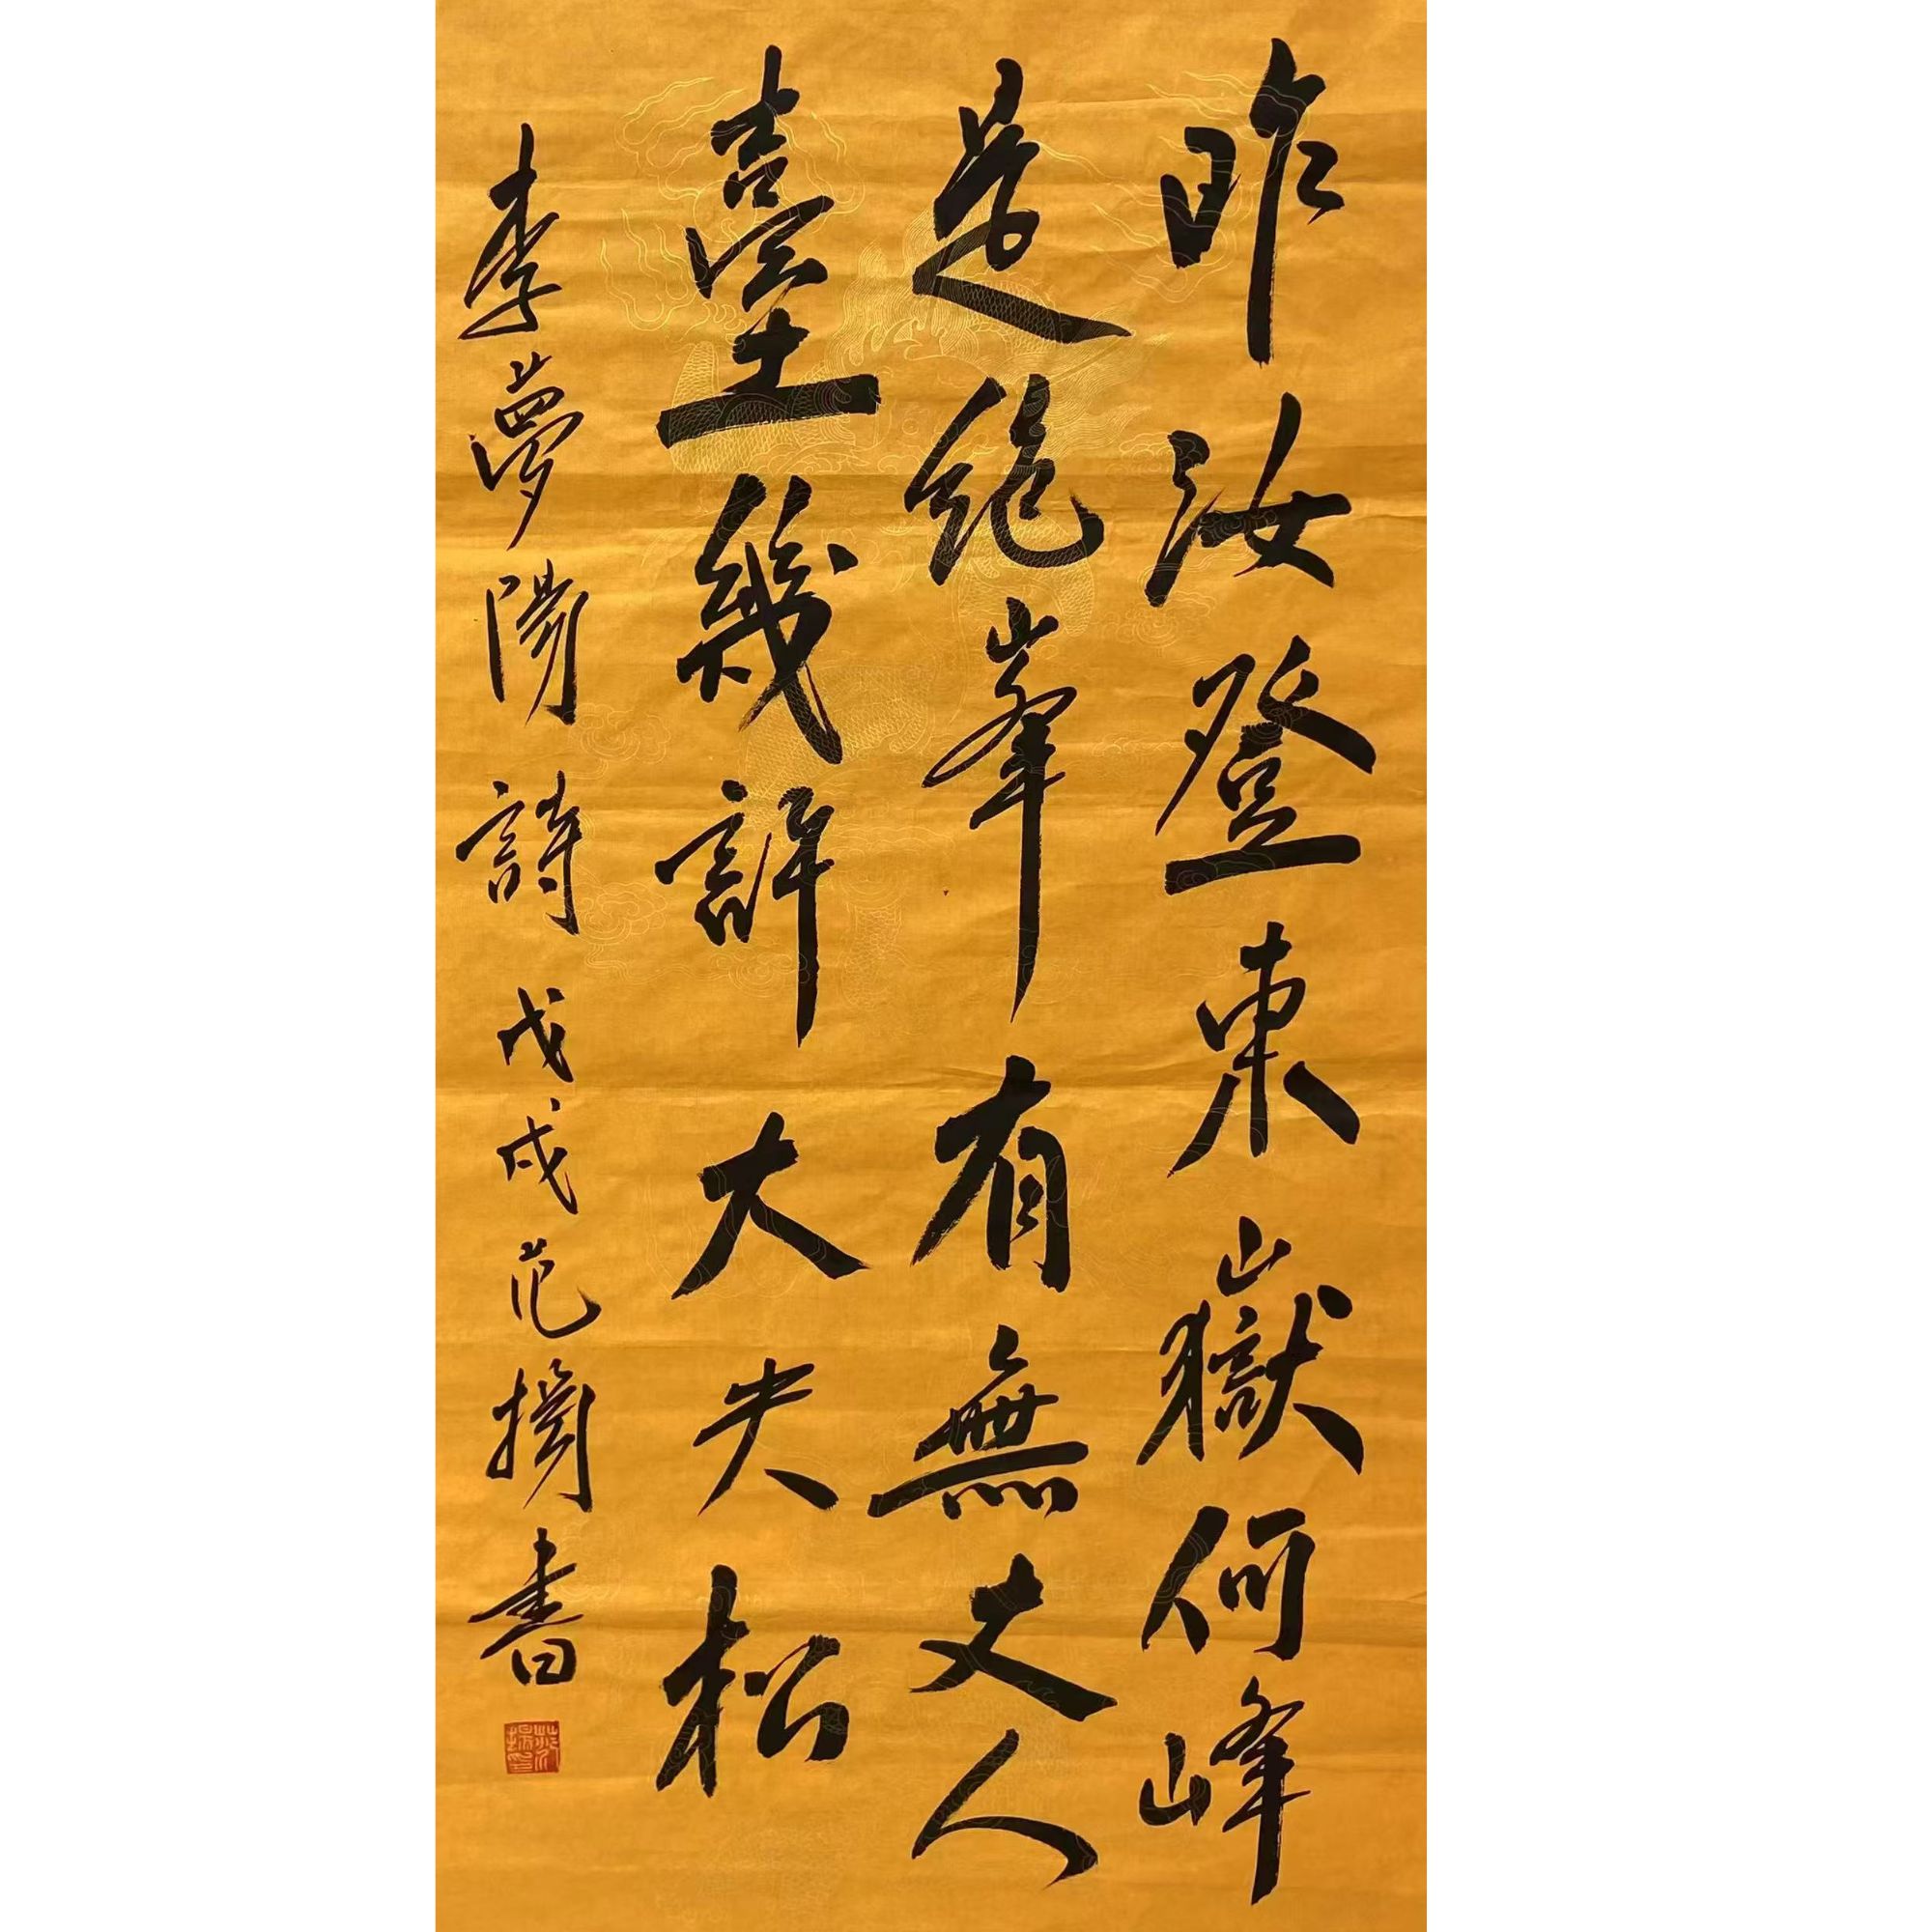 昨汝登東嶽何峰
是絶峯有無丈人
臺幾許大夫松
李夢陽詩戊戌范揚書
范揚印